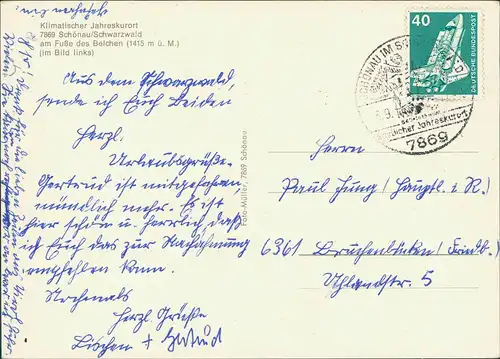 Klimatischer Jahreskurort
7869 Schönau/Schwarzwald
am Fuße des Belchen (1415 m ü. M.)
(im Bild links)
Aus dem Schwarzwald,
sende ich Euch beiden
Herzl.
Urlaubsgrüße.
Gertrud ist mitgefahren
mündlich mehr. Es ist
hier schön u. herrlich, daß
ich Euch das zur Nachahmung
empfehlen kann.
Nochmals
Herzl. Grüße
Lieschen + Gertrud
Foto-Müller, 7869 Schönau
40
DEUTSCHE BUNDESPOST
SCHÖNAU IM
Jahreskurort
7869
Herrn
Paul Jung (Hauptl. i. R.)
6361 Bruchenbrücken (Friedb.)
Uhlandstr. 5